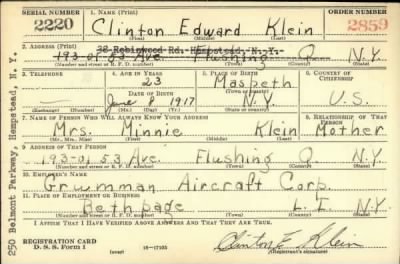 SERIAL NUMBER 1. NAME (Print) ORDER NUMBER
2220 Clinton Edward Klein 2859
2. ADDRESS (Print) 38 Robinwood Rd. Hempstead, N.Y.
193-01 53 Ave. Flushing Q N.Y.
(Number and street or R. F. D. number) (Town) (County) (State)
3. TELEPHONE 4. AGE IN YEARS 5. PLACE OF BIRTH 6. COUNTRY OF CITIZENSHIP
23 Maspeth
DATE OF BIRTH (Town or county)
June 8 1917 N.Y. U.S.
(Exchange) (Number) (Mo.) (Day) (Yr.) (State or country)
7. NAME OF PERSON WHO WILL ALWAYS KNOW YOUR ADDRESS 8. RELATIONSHIP OF THAT PERSON
Mrs. Minnie Klein Mother
(Mr., Mrs., Miss) (First) (Middle) (Last)
9. ADDRESS OF THAT PERSON
193-01 53 Ave. Flushing Q N.Y.
(Number and street or R. F. D. number) (Town) (County) (State)
10. EMPLOYER'S NAME
Grumman Aircraft Corp.
11. PLACE OF EMPLOYMENT OR BUSINESS
Bethpage L. I. N.Y.
(Number and street or R. F. D. number) (Town) (County) (State)
I AFFIRM THAT I HAVE VERIFIED ABOVE ANSWERS AND THAT THEY ARE TRUE.
REGISTRATION CARD
D. S. S. Form 1 (over) 16—17105 Clinton E. Klein
(Registrant's signature)
250 Belmont Parkway, Hempstead, N. Y.